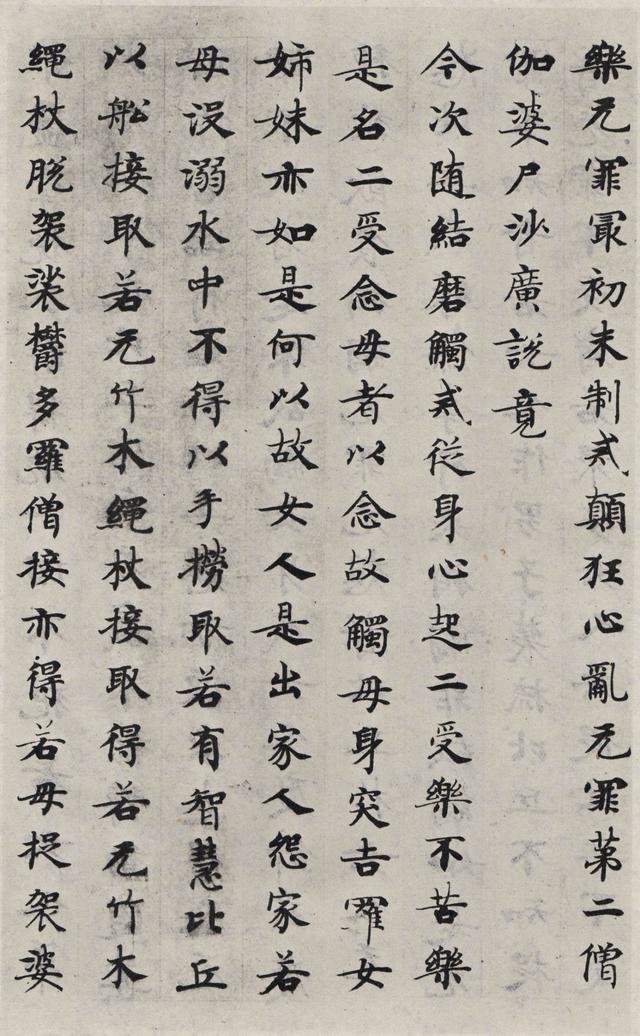 樂无罪冣初未制戒顛狂心亂无罪第二僧
伽婆尸沙廣說竟
今次随結磨觸戒従身心起二受樂不苦樂
是名二受念母者以念故觸母身突吉羅女
姉妹亦如是何以故女人是出家人怨家若
母没溺水中不得以手撈取若有智慧比丘
以舩接取若无竹木繩杖接取得若无竹木
繩杖脱袈裟欝多羅僧接亦得若母捉袈婆